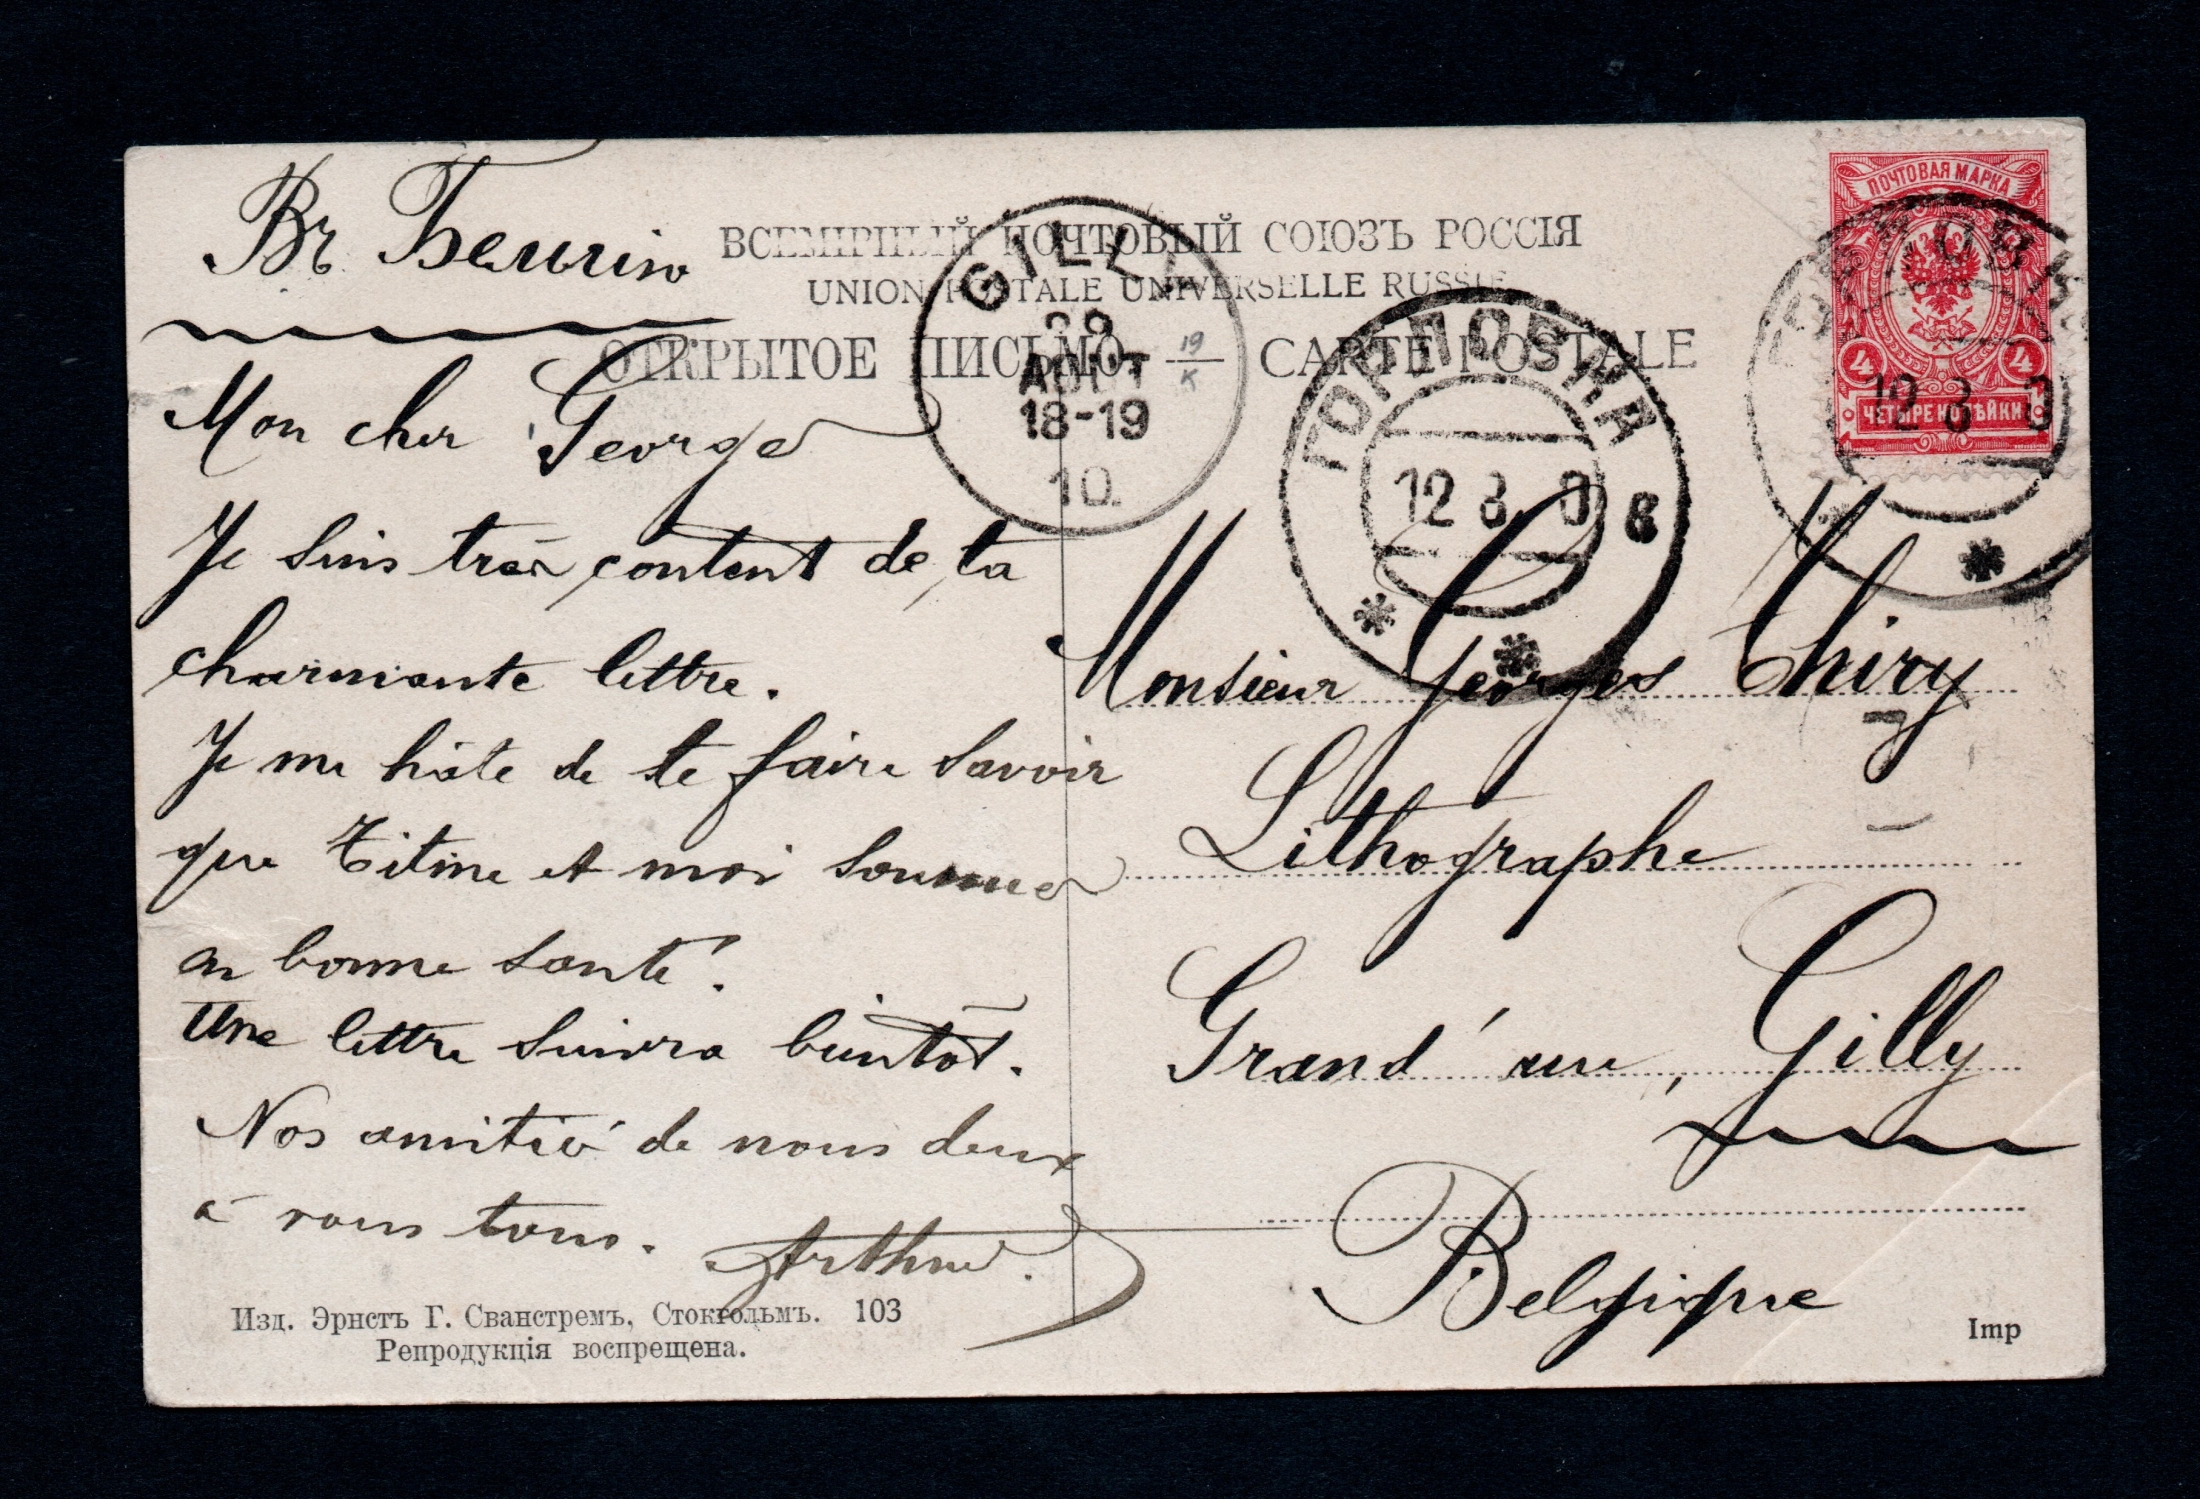 Въ Бельгію
ВСЕМІРНЫЙ ПОЧТОВЫЙ СОЮЗЪ РОССІЯ
UNION POSTALE UNIVERSELLE RUSSIE
ОТКРЫТОЕ ПИСЬМО. — CARTE POSTALE
19
K
GILLY
AOUT
18-19
10.
ГОРЛОВКА
12 8 0
в
ПОЧТОВАЯ МАРКА
4 4
ЧЕТЫРЕ КОПѢЙКИ
12 8 0
Mon cher George
Je suis très content de ta
charmante lettre.
Je me hâte de te faire savoir
que Titine et moi sommes
en bonne santé.
Une lettre suivra bientôt.
Nos amitié de nous deux
à vous tous.
Arthur.
Monsieur Georges Thiry
Lithographe
Grand' rue, Gilly
Belgique
Изд. Эрнстъ Г. Сванстремъ, Стокгольмъ. 103
Репродукція воспрещена.
Imp